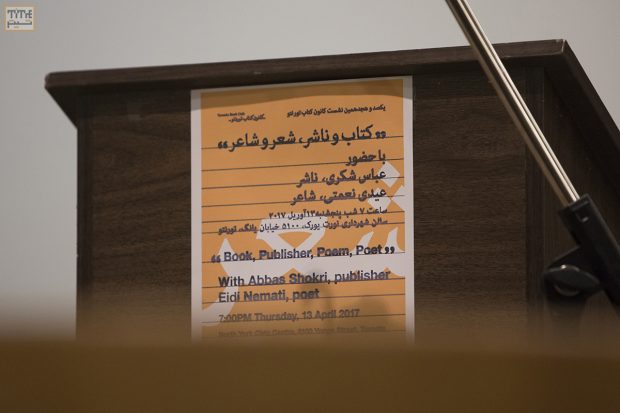 TITRE
تیتر
Toronto Book Club
کانون کتاب تورنتو
یکصد و هجدهمین نشست کانون کتاب تورنتو
«کتاب و ناشر، شعر و شاعر»
با حضور
عباس شکری، ناشر
عیدی نعمتی، شاعر
ساعت ۷ شب پنجشنبه ۱۳ آوریل ۲۰۱۷
سالن شهرداری نورت یورک، ۵۱۰۰ خیابان یانگ، تورنتو
شعر
“Book, Publisher, Poem, Poet”
With Abbas Shokri, publisher
Eidi Nemati, poet
7:00PM Thursday, 13 April 2017
North York Civic Centre, 5100 Yonge Street, Toronto